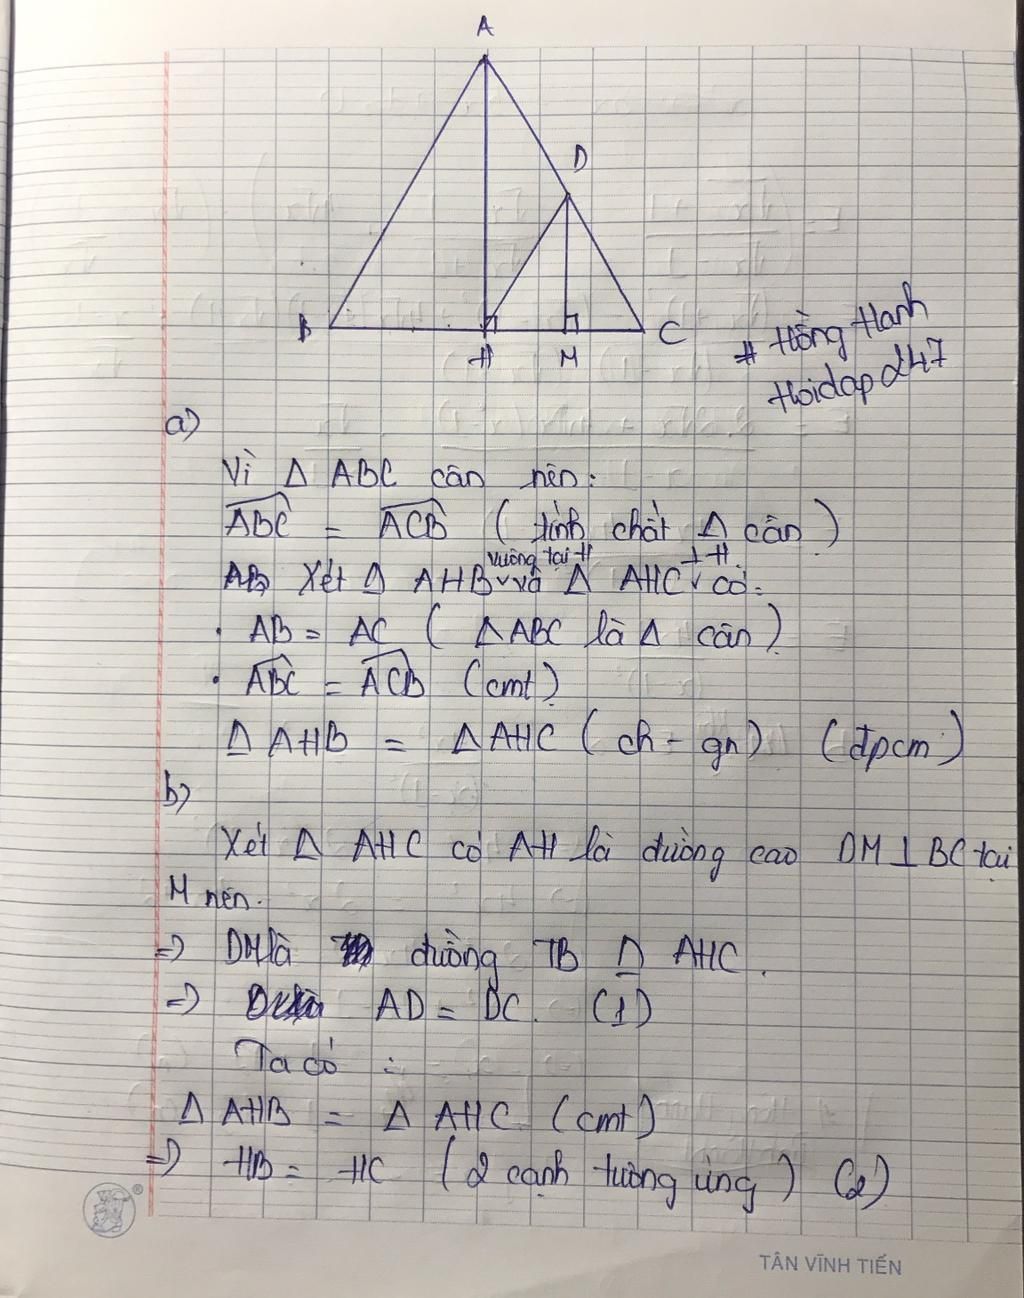 A
D
B
H
M
C
# Hồng Hanh
Hoidap247
a)
Vì Δ ABC cân nên:
ABC = ACB (tính chất Δ cân)
vuông tại H ⊥ H
Xét Δ AHB và Δ AHC có:
• AB = AC (ΔABC là Δ cân)
• ABC = ACB (cmt)
Δ AHB = Δ AHC (ch - gn) (đpcm)
b)
Xét Δ AHC có AH là đường cao DM ⊥ BC tại
M nên.
=> DM là đường TB Δ AHC.
=> AD = DC. (1)
Ta có :
Δ AHB = Δ AHC (cmt)
=> HB = HC (2 cạnh tương ứng) (2)
®
TÂN VĨNH TIẾN